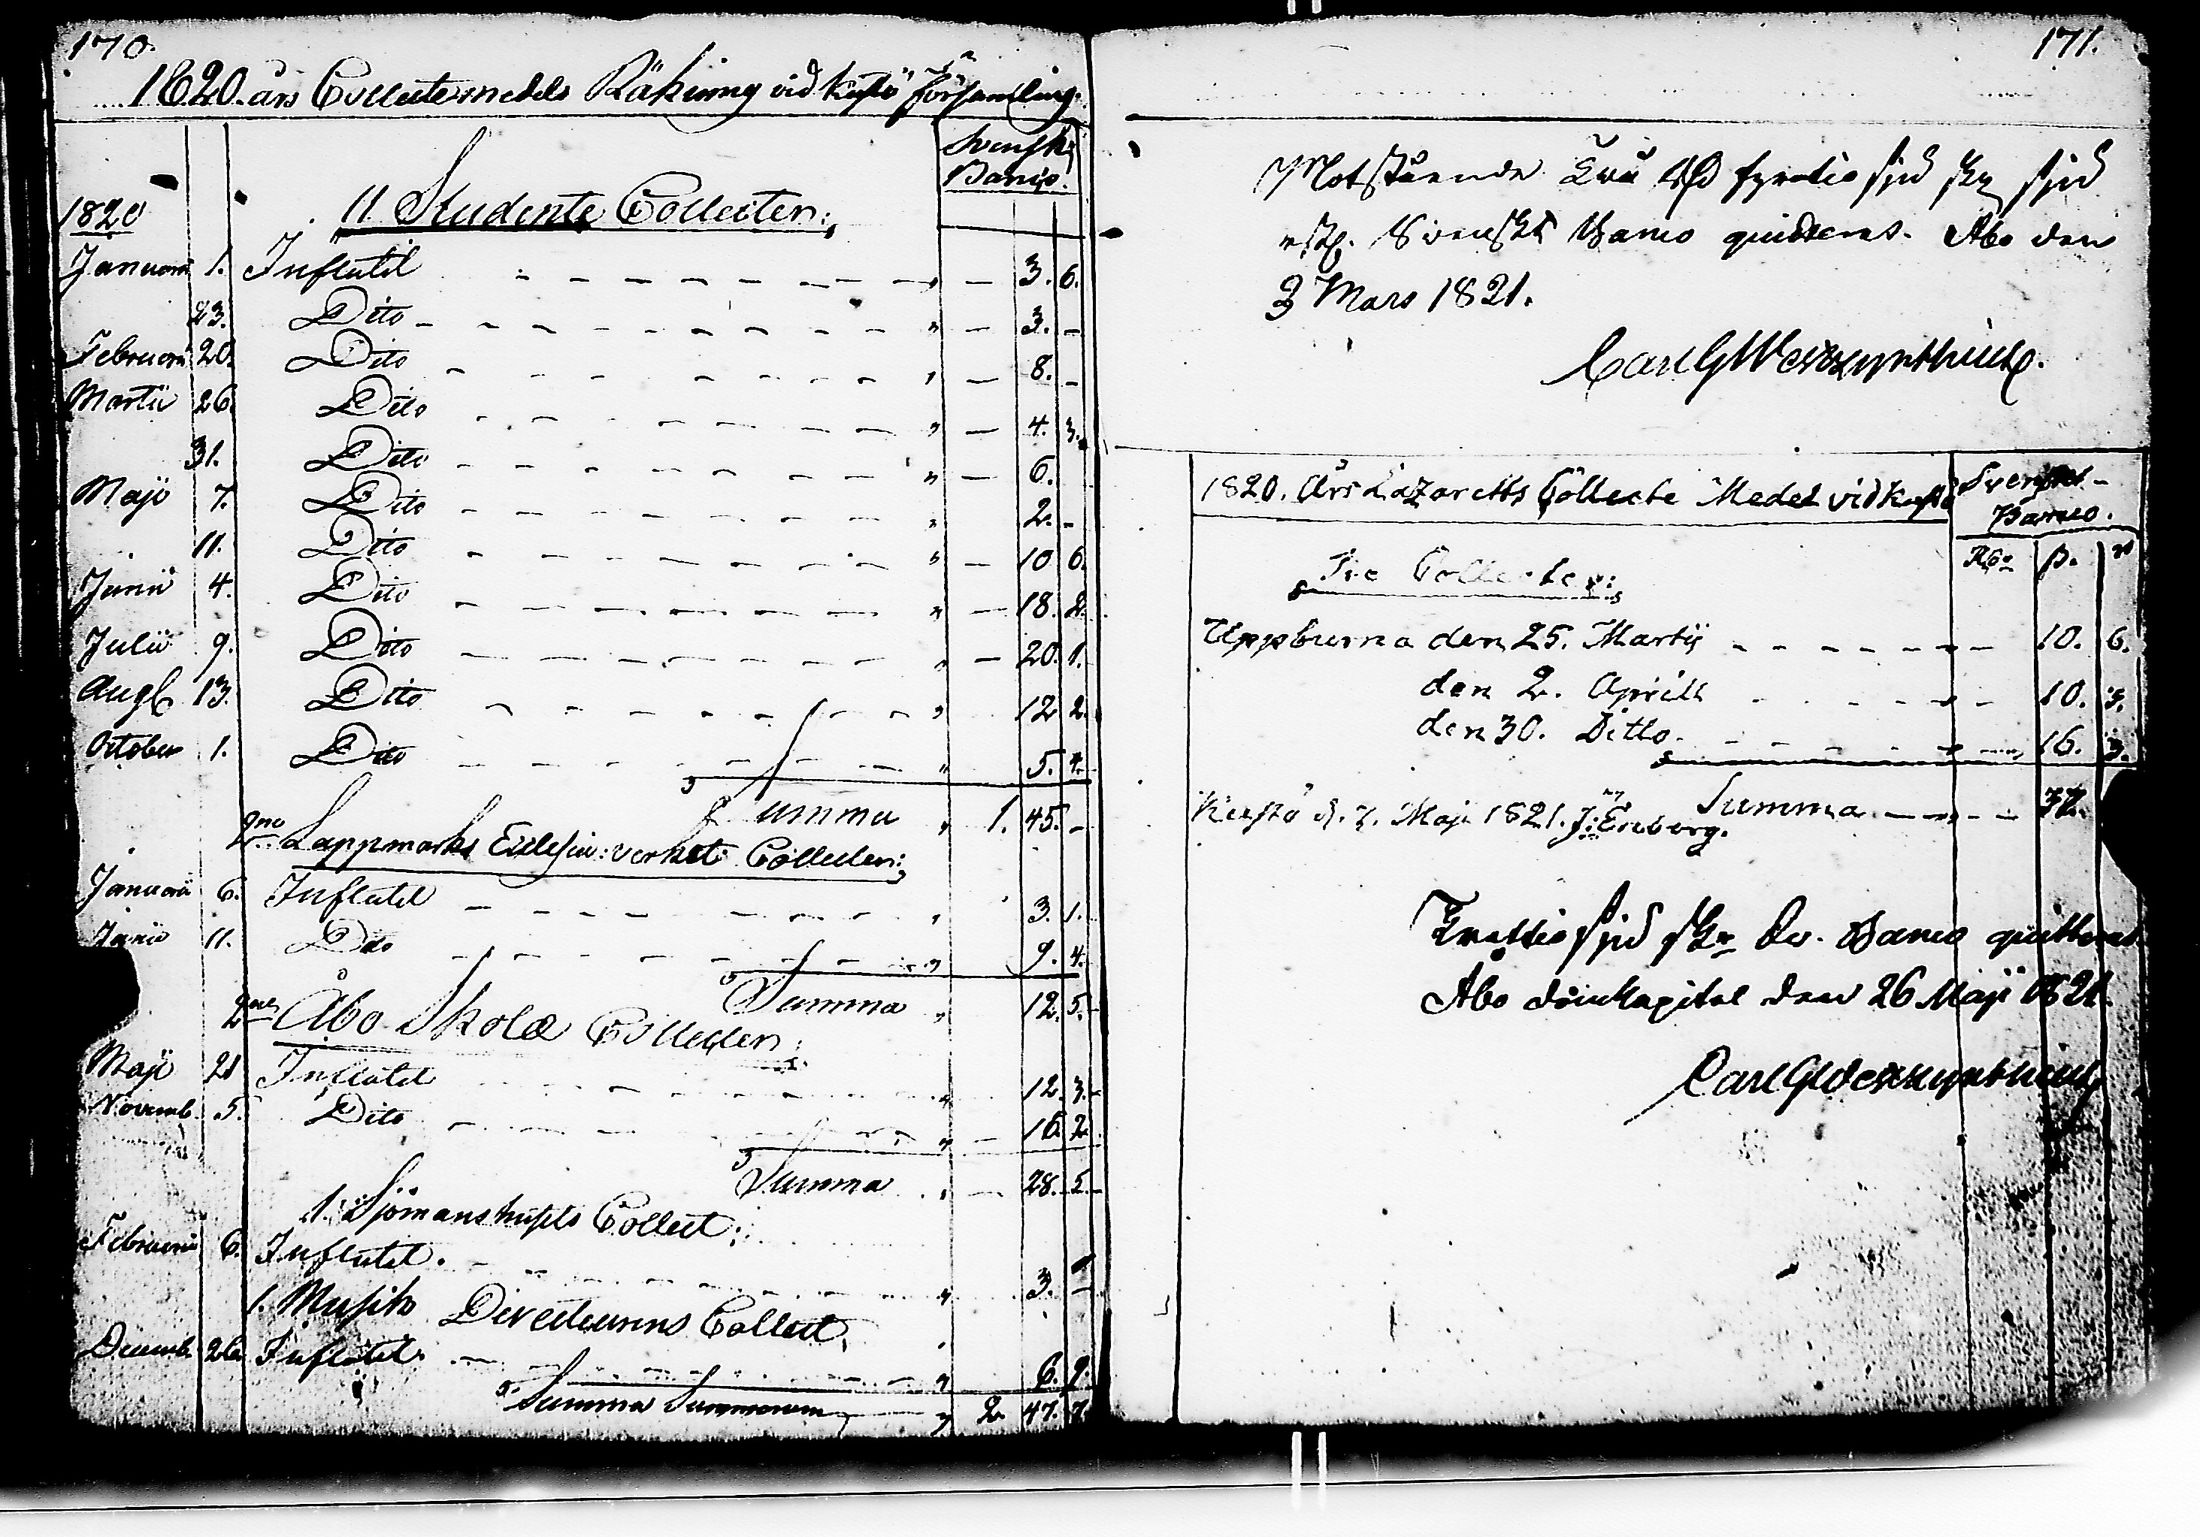 170.
1820. års Collectemedels Räkning vid Kustö församling.
Svenskt
Banco.
11 Studente Collecter:
1820
Januarii 1. Influtit " — 3. 6.
23. Dito " — 3. —
Februarii 20. Dito " — 8. —
Martii 26. Dito " — 4. 3.
31. Dito " — 6.
Maji 7. Dito " 2. —
11. Dito " — 10 6.
Junii 4. Dito " — 18. 2.
Julii 9. Dito " — 20. 1.
Aug 13. Dito " 12 2.
October 1. Dito " 5. 4.
Summa " 1. 45. —
2ne Lappmarks Ecclesia: verket Collecter:
Januarii 6. Influtit " 3. 1.
Junii 11. Dito " 9. 4.
Summa " 12. 5.
2ne Åbo Skola Collecter:
Maji 21 Influtit " 12. 3.
Novemb. 5. Dito " — 16. 2.
Summa " — 28. 5.
1. Sjömanshusets Collect:
Februarii 6. Influtit. " 3. —
1. Musik Directeurens Collect
Decemb. 26. Influtit " 6. 9.
Summa Summarum " 2. 47. 7.
171.
Motstående Två Rd fyratio sju sk sju
rst. Svenskt Banco quitteras. Åbo den
3 Mars 1821.
Carl G
1820. Års Lazaretts Collecte Medel vid Kustö
Svenskt
Banco.
Tre Collecter:
Rd β. r
Uppburna den 25. Martii 10. 6.
den 2. Aprill 10. 3.
den 30. Ditto 16. 3.
Summa 37.
Kustö d. 7. Maji 1821. J: Enberg.
Trettiosju sk Sv. Banco quitteras
Åbo Domkapitel den 26 Maji 1821.
Carl G